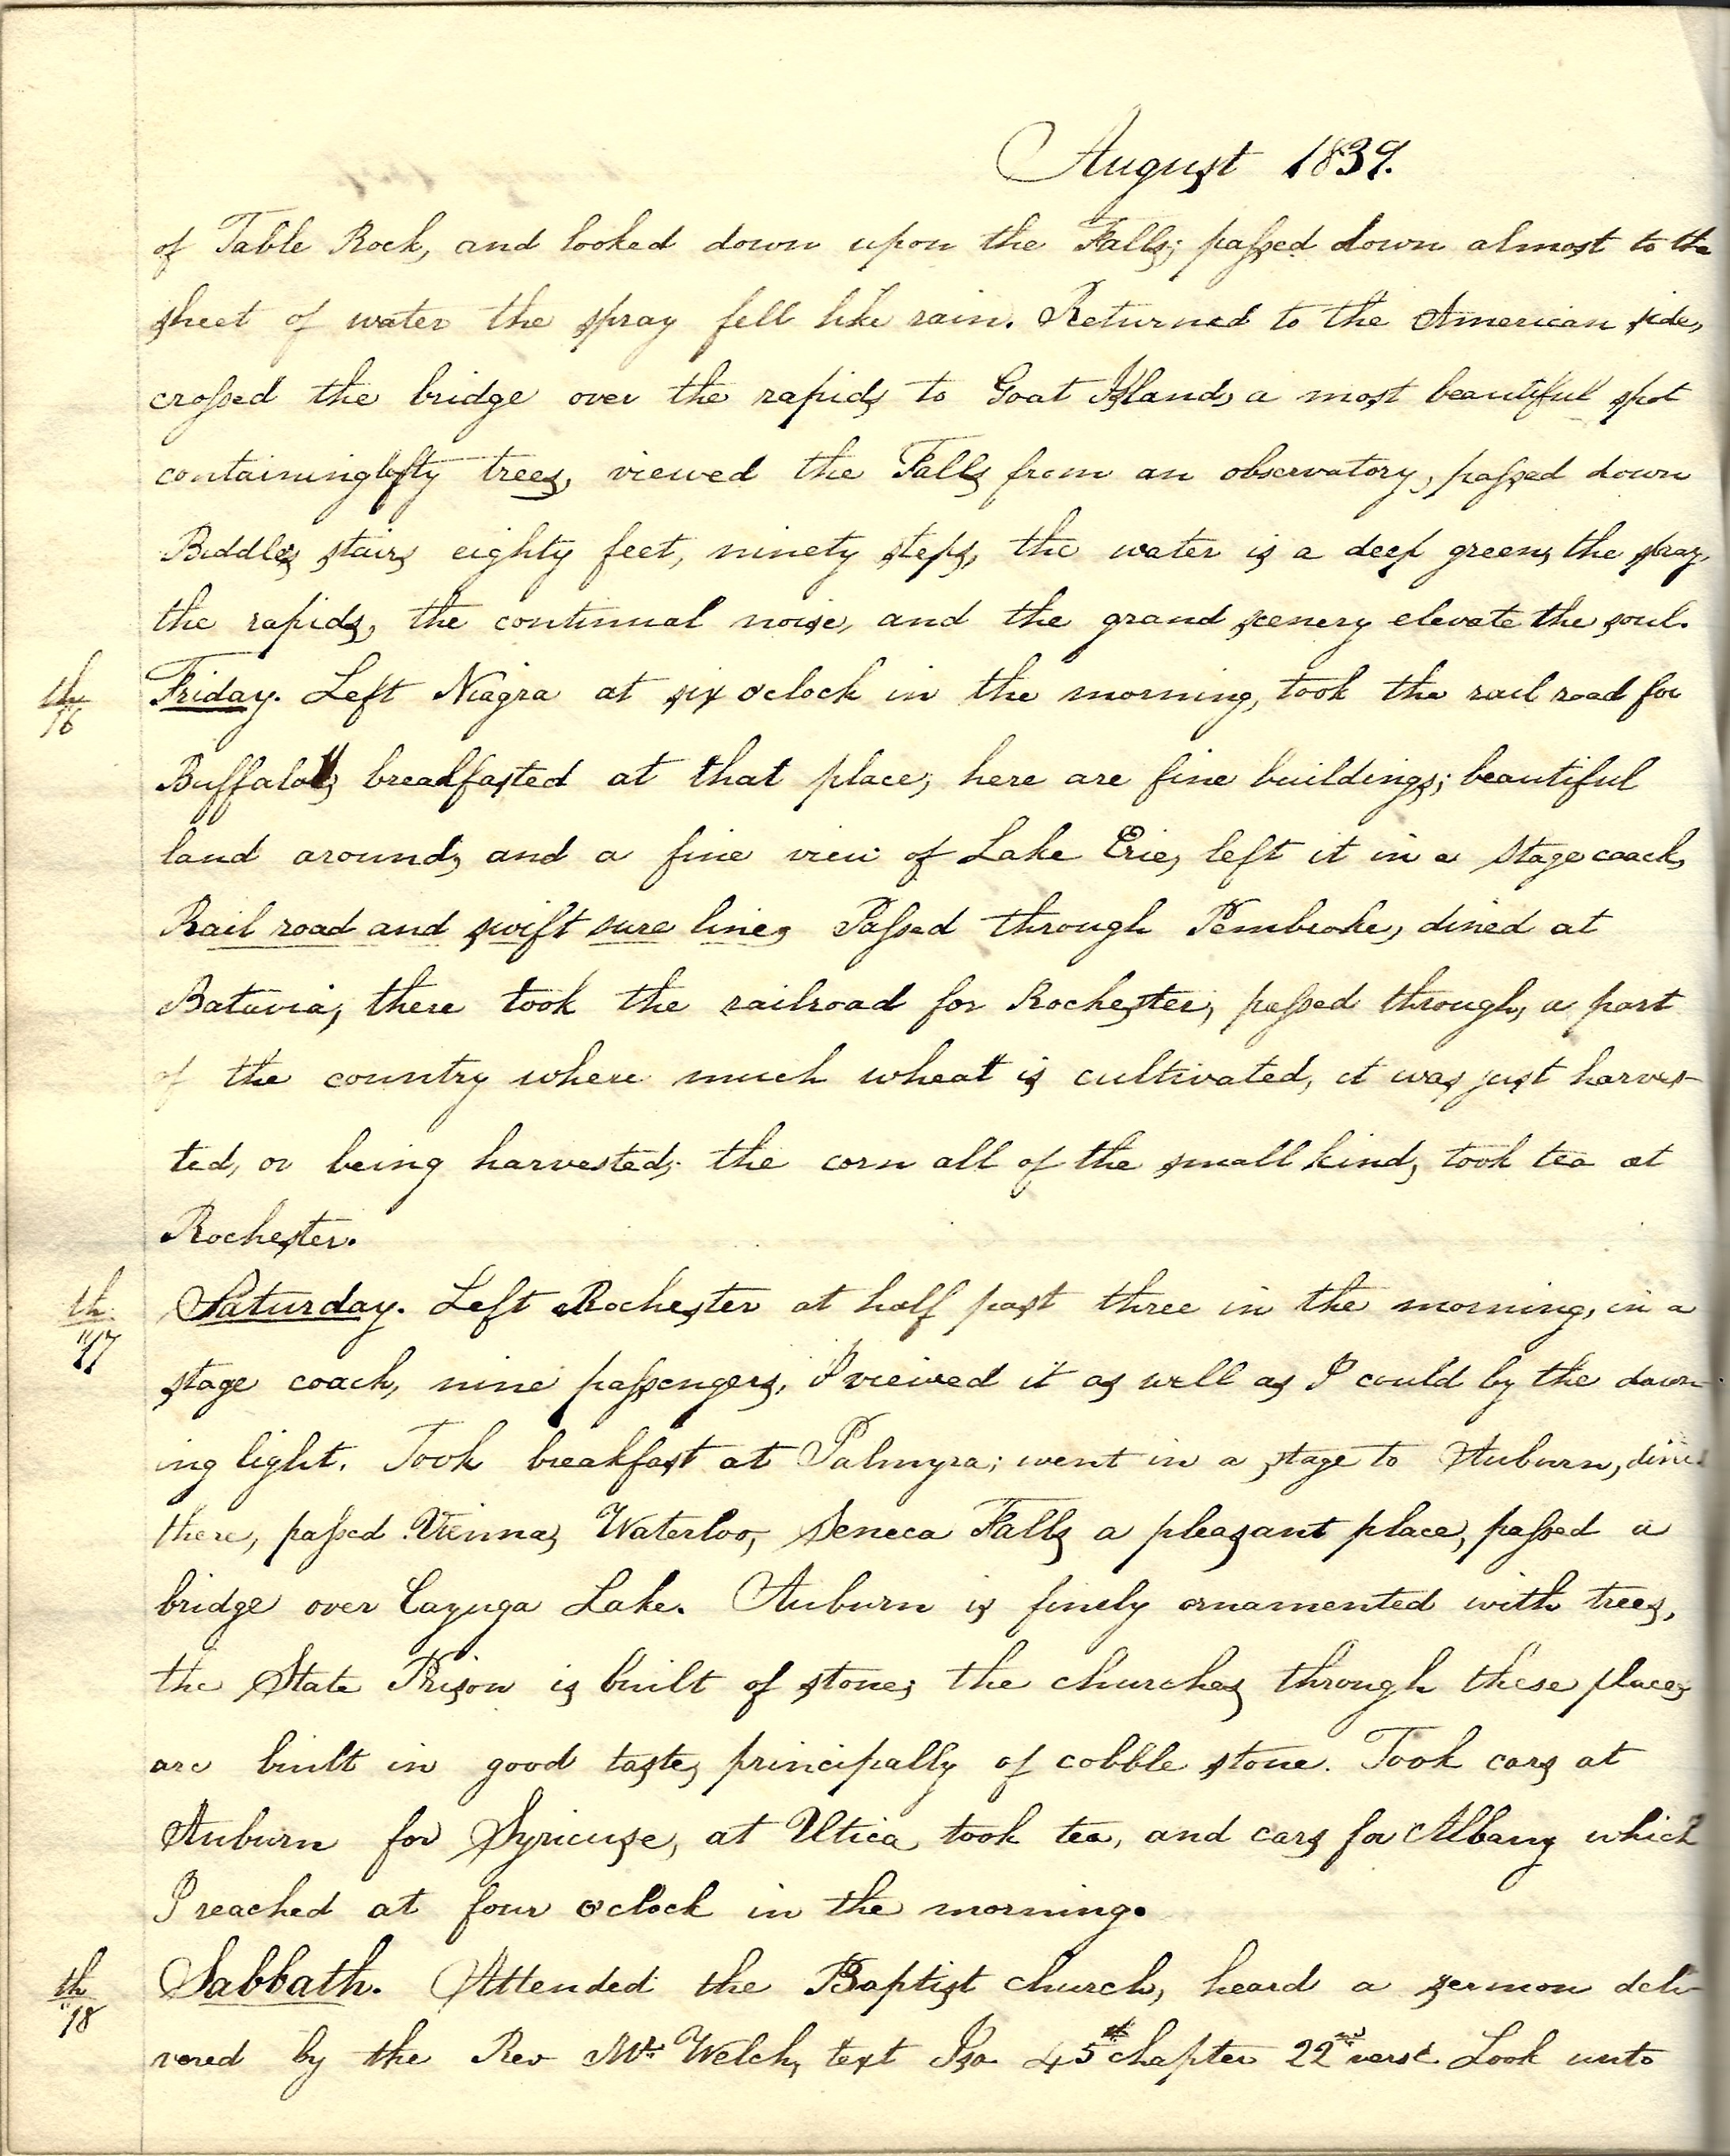 August 1839.
of Table Rock, and looked down upon the Falls; passed down almost to the
sheet of water the spray fell like rain. Returned to the American side,
crossed the bridge over the rapids to Goat Island, a most beautiful spot
containing lofty trees, viewed the Falls from an observatory, passed down
Biddles stairs eighty feet, ninety steps, the water is a deep green, the spray,
the rapids, the continual noise, and the grand scenery elevate the soul.
16th Friday. Left Niagra at six oclock in the morning, took the rail road for
Buffalo, breakfasted at that place; here are fine buildings; beautiful
land around, and a fine view of Lake Erie, left it in a stage coach,
Rail road and swift sure line, Passed through Pembroke, dined at
Batavia, there took the railroad for Rochester, passed through, a part
of the country where much wheat is cultivated, it was just harves-
ted, or being harvested; the corn all of the small kind, took tea at
Rochester.
17th Saturday. Left Rochester at half past three in the morning, in a
stage coach, nine passengers, I viewed it as well as I could by the dawn-
ing light. Took breakfast at Palmyra; went in a stage to Auburn, dined
there, passed Vienna, Waterloo, Seneca Falls a pleasant place, passed a
bridge over Cayuga Lake. Auburn is finely ornamented with trees,
the State Prison is built of stone; the churches through these places
are built in good taste, principally of cobble stone. Took cars at
Auburn for Syricuse, at Utica took tea, and cars for Albany which
I reached at four oclock in the morning.
18th Sabbath. Attended the Baptist church, heard a sermon deli-
vered by the Rev Mr. Welch, text Isa 45th chapter 22nd verse Look unto